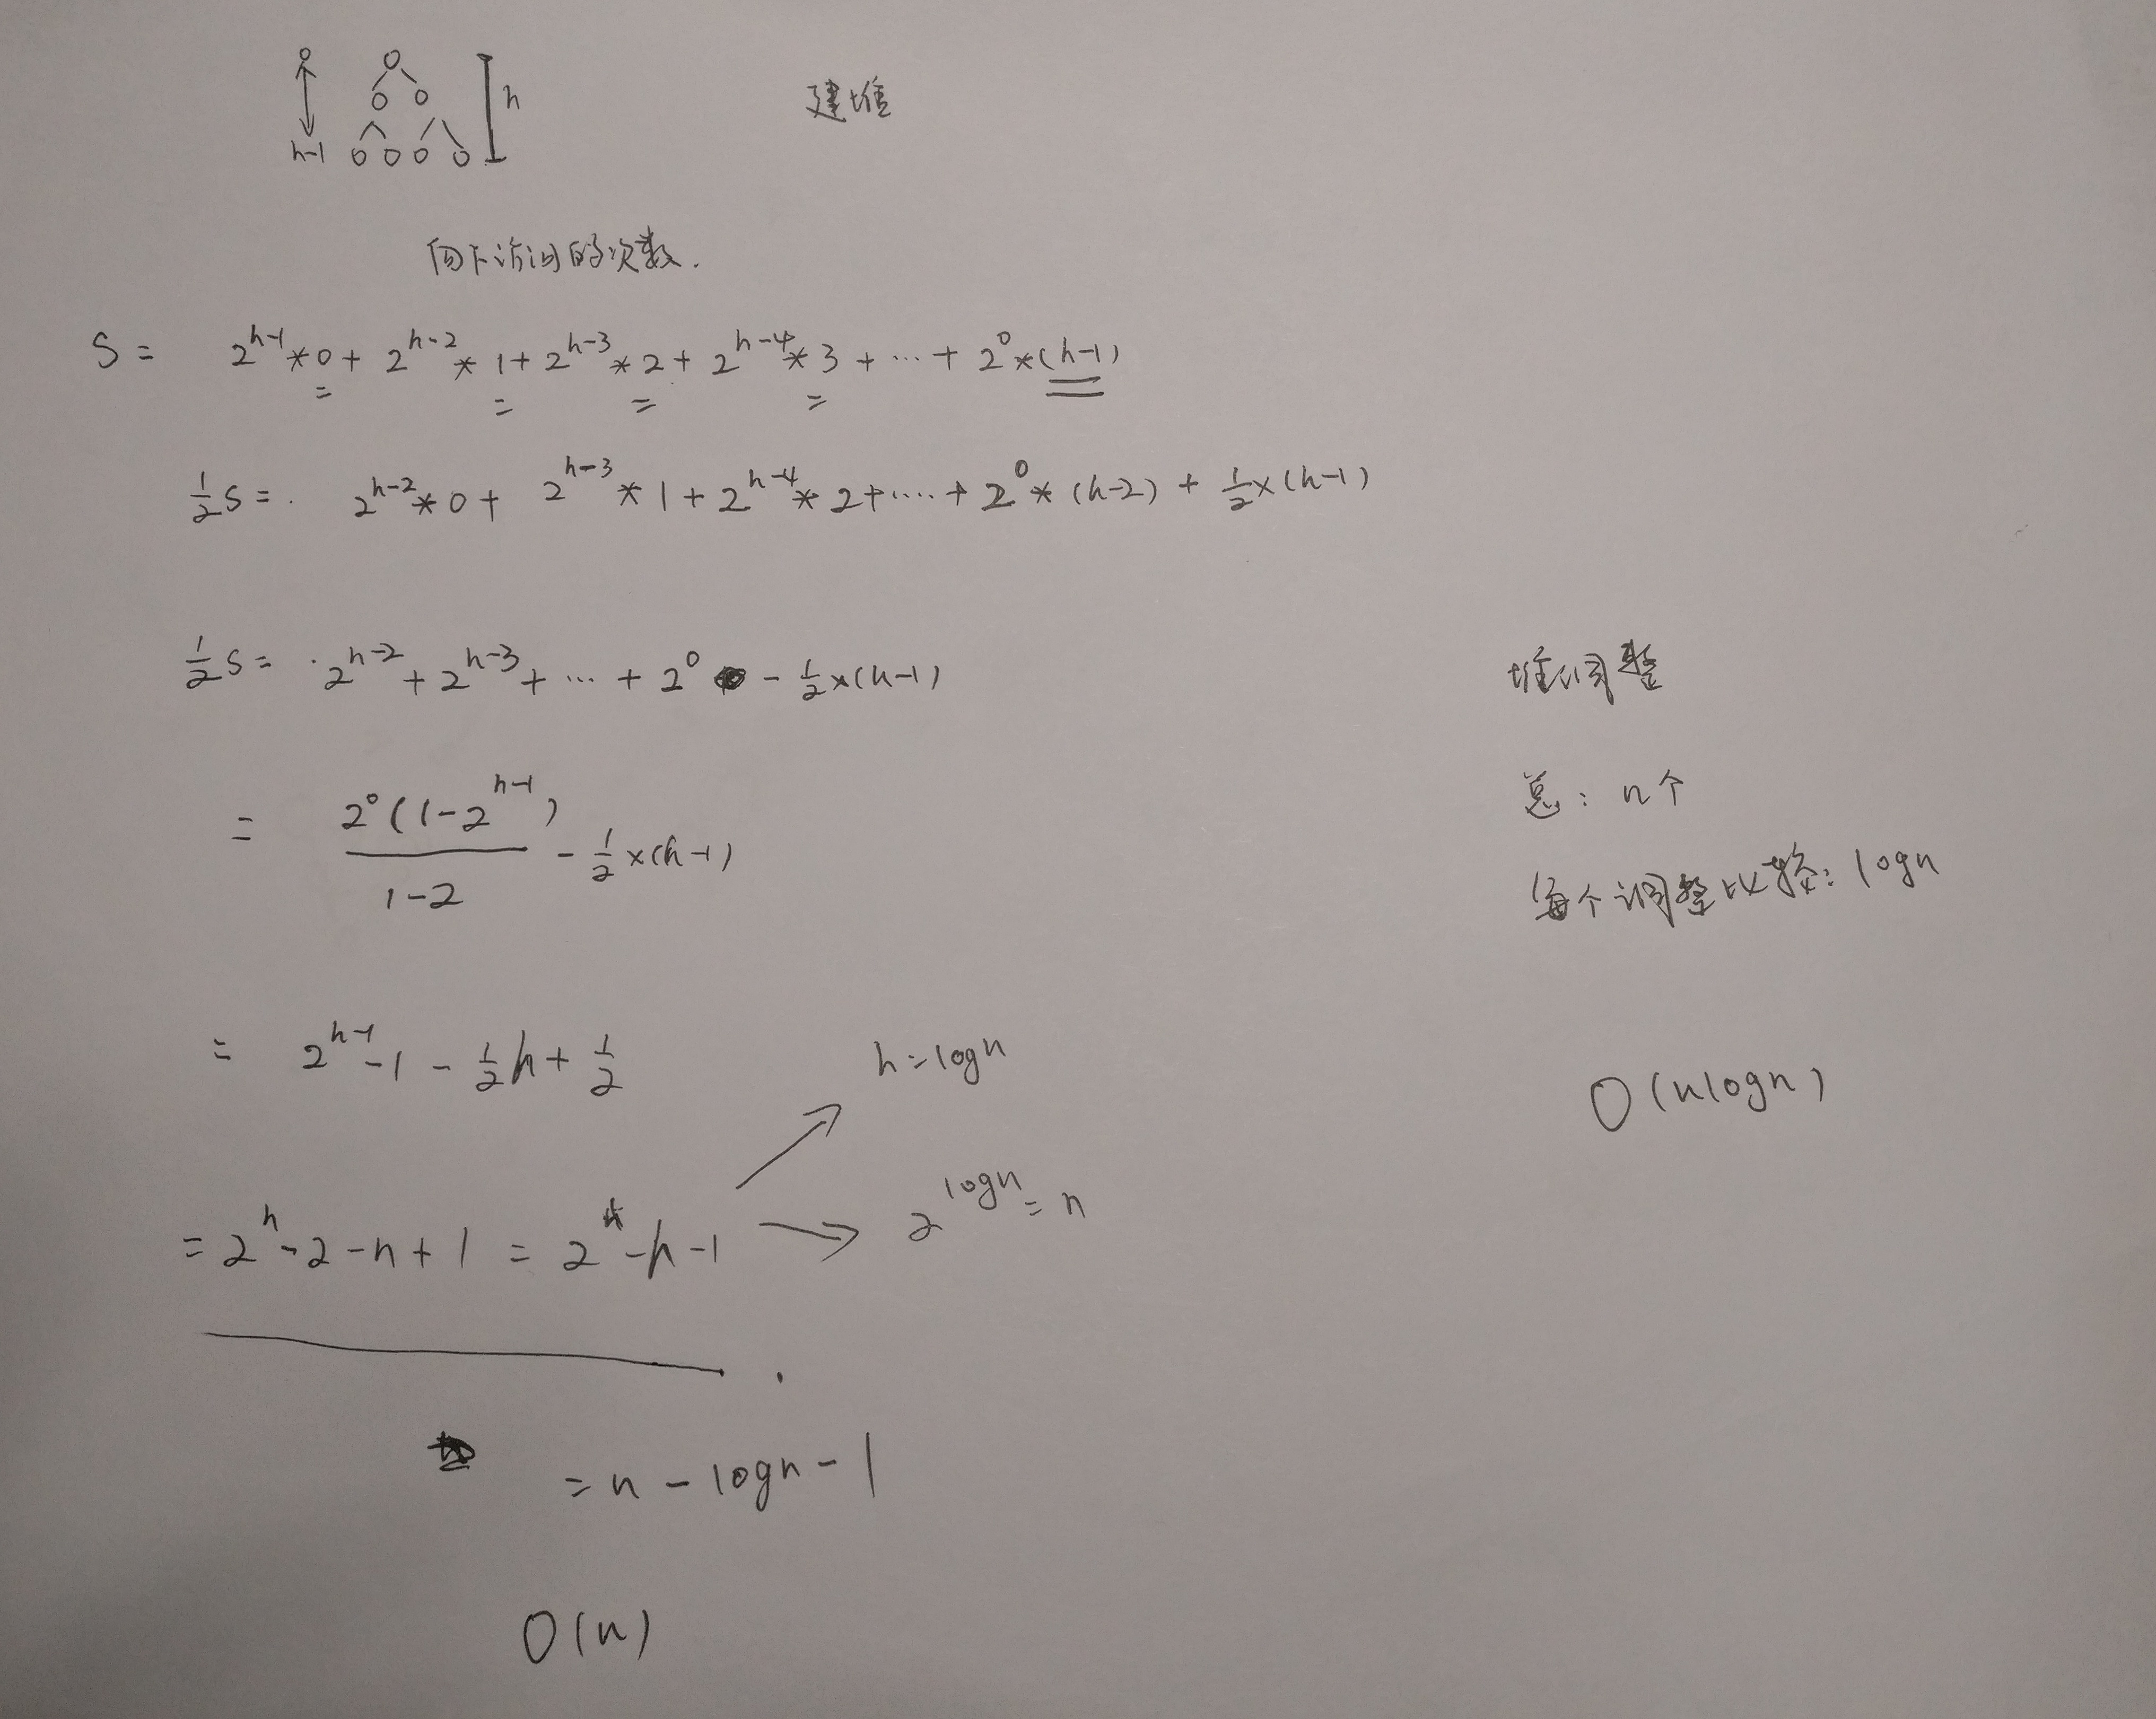 建堆
h
h-1
向下访问的次数.
S = 2^{h-1}*0 + 2^{h-2}*1 + 2^{h-3}*2 + 2^{h-4}*3 + ... + 2^0*(h-1)
1/2 S = 2^{h-2}*0 + 2^{h-3}*1 + 2^{h-4}*2 + ... + 2^0*(h-2) + 1/2×(h-1)
1/2 S = 2^{h-2} + 2^{h-3} + ... + 2^0 - 1/2×(h-1)
= 2^0(1-2^{h-1}) / (1-2) - 1/2×(h-1)
= 2^{h-1} - 1 - 1/2 h + 1/2
= 2^h - 2 - h + 1 = 2^h - h - 1
h = logn
2^{logn} = n
= n - logn - 1
O(n)
堆调整
总: n个
每个调整比较: logn
O(nlogn)